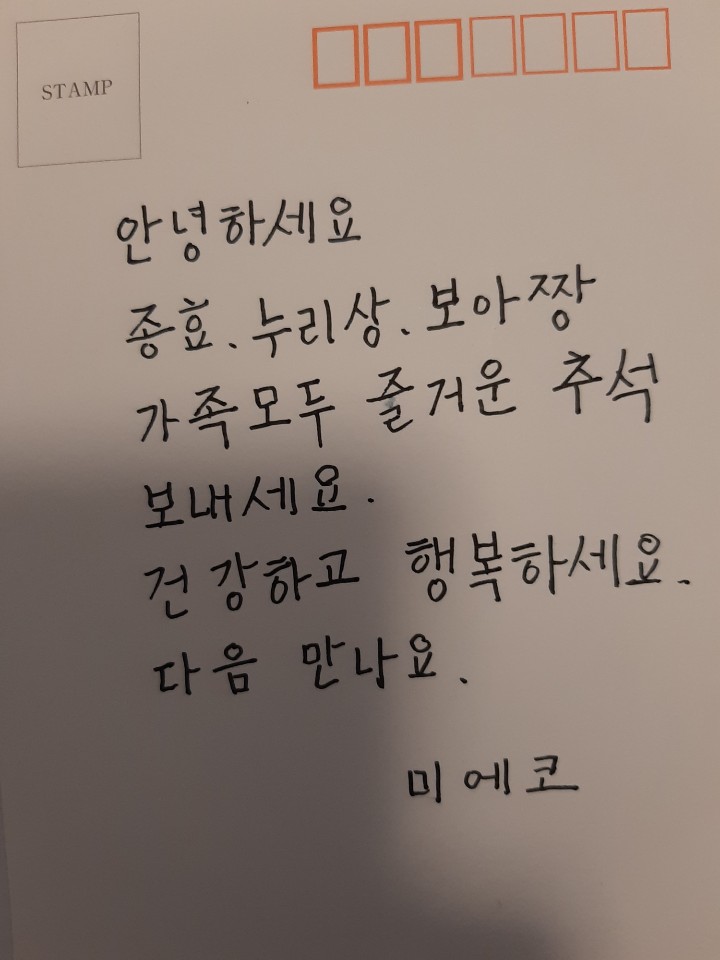 STAMP
안녕하세요
종효.누리상.보아짱
가족모두 즐거운 추석
보내세요.
건강하고 행복하세요.
다음 만나요.
미에코